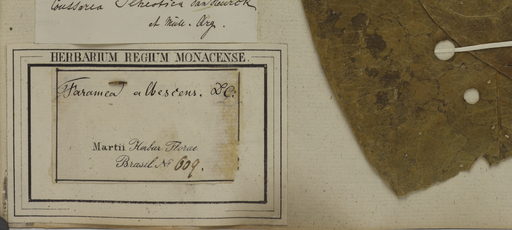 Coussarea
et Müll. Arg.
HERBARIUM REGIUM MONACENSE.
Faramea albescens. DC.
Martii Herbar. Florae
Brasil. No 609.